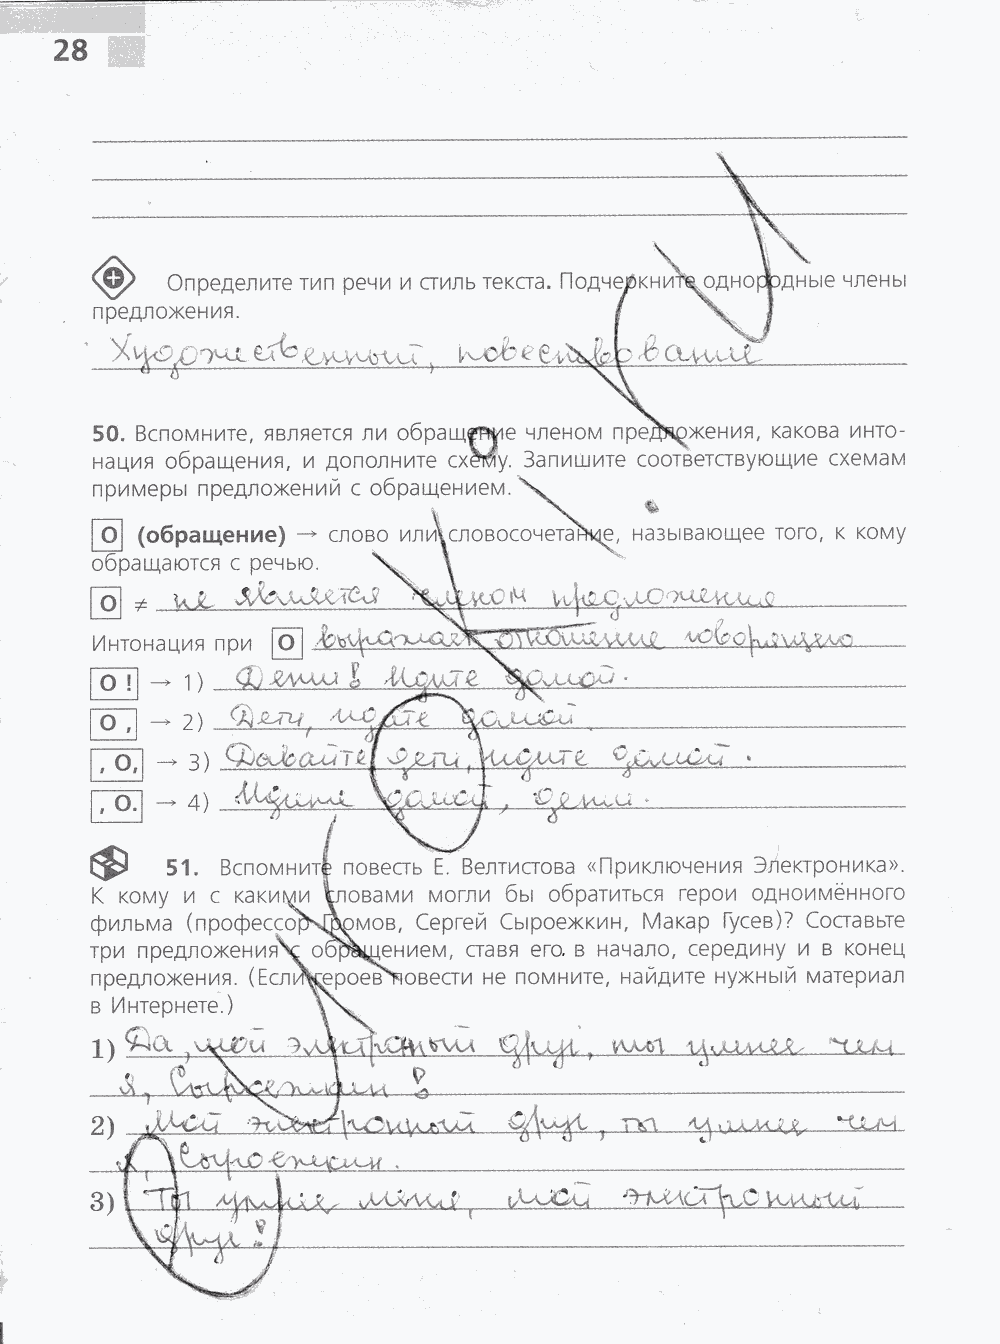 28
Определите тип речи и стиль текста. Подчеркните однородные члены
предложения.
Художественный, повествование
50. Вспомните, является ли обращение членом предложения, какова инто-
нация обращения, и дополните схему. Запишите соответствующие схемам
примеры предложений с обращением.
О (обращение) → слово или словосочетание, называющее того, к кому
обращаются с речью.
О ≠ не является членом предложения
Интонация при О выражает отношение говорящего
О! → 1) Дети! Идите домой.
О, → 2) Дети, идите домой.
, О, → 3) Давайте, дети, идите домой.
, О. → 4) Идите домой, дети.
51. Вспомните повесть Е. Велтистова «Приключения Электроника».
К кому и с какими словами могли бы обратиться герои одноимённого
фильма (профессор Громов, Сергей Сыроежкин, Макар Гусев)? Составьте
три предложения с обращением, ставя его в начало, середину и в конец
предложения. (Если героев повести не помните, найдите нужный материал
в Интернете.)
1) Да, мой электроный друг, ты умнее чем
я, Сыроежкин!
2) Мой электронный друг, ты умнее чем
я, Сыроежкин.
3) Ты умнее меня, мой электронный
друг!